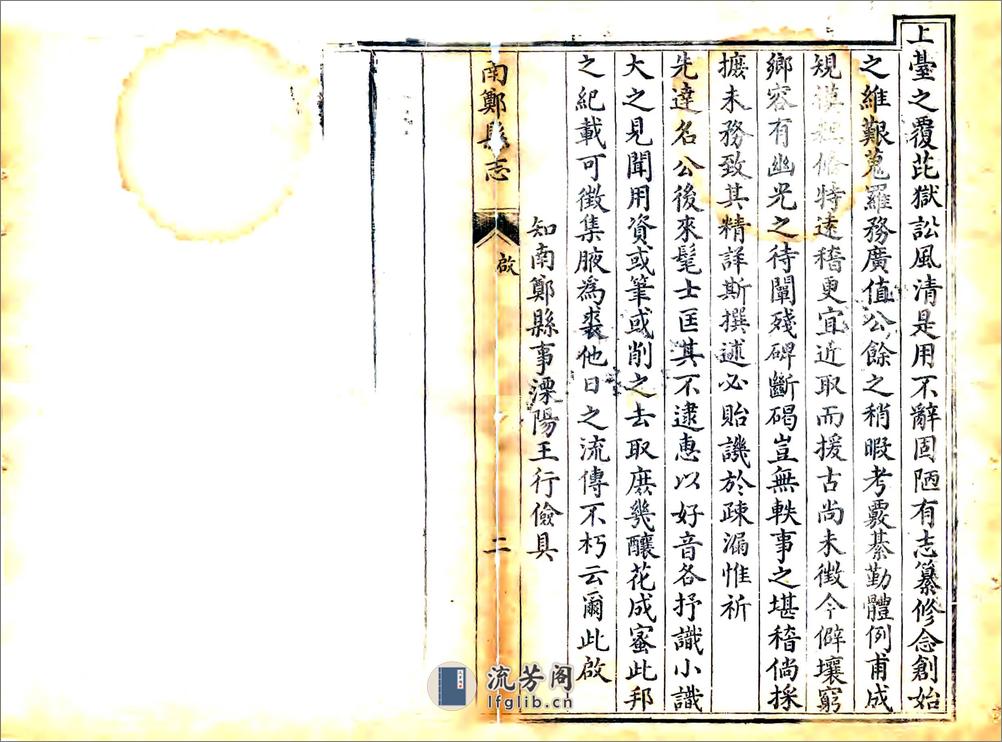 上臺之覆芘獄訟風清是用不辭固陋有志纂修念創始
之維艱蒐羅務廣值公餘之稍暇考覈綦勤體例甫成
規模粗俻特遠稽更宜近取而援古尚未徵今僻壤窮
鄉容有幽光之待闡殘碑斷碣豈無軼事之堪稽倘採
摭未務致其精詳斯撰述必貽譏於疎漏惟祈
先達名公後來髦士匡其不逮惠以好音各抒識小識
大之見聞用資或筆或削之去取庶幾釀花成蜜此邦
之紀載可徵集腋為裘他日之流傳不朽云爾此啟
知南鄭縣事溧陽王行儉具
南鄭縣志
啟
二
流芳阁
lfglib.cn